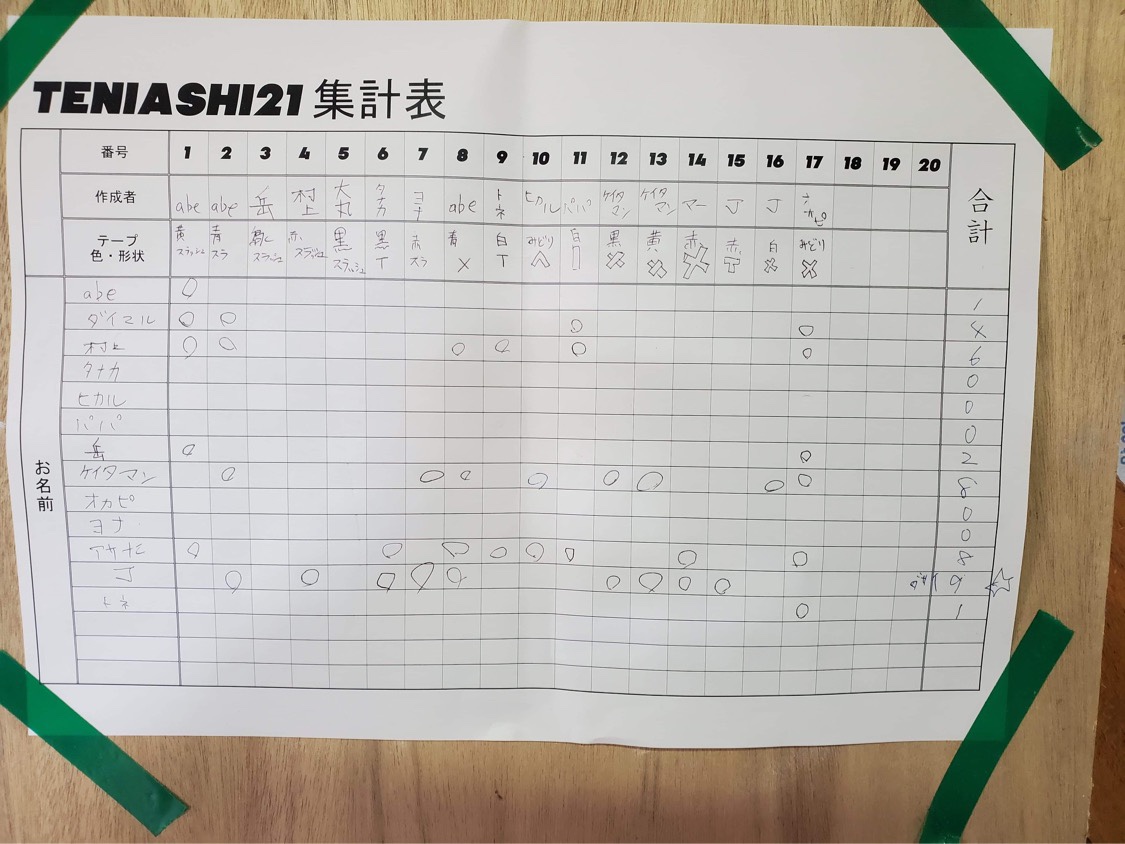 TENIASHI21 集計表
番号 1 2 3 4 5 6 7 8 9 10 11 12 13 14 15 16 17 18 19 20 合計
作成者 abe abe 岳 村上 大丸 タナカ ヨナ abe トネ ヒカル パパ ケイタマン ケイタマン マー J J オカピ
テープ色・形状 黄スラッシュ 青スラ スラッシュ 赤スラッシュ 黒スラッシュ 黒T 赤スラ 青X 白T みどり 白 黒 黄 赤 赤 白 みどり
お名前
abe ○ 1
ダイマル ○ ○ ○ ○ 4
村上 ○ ○ ○ ○ ○ ○ 6
タナカ 0
ヒカル 0
パパ 0
岳 ○ ○ 2
ケイタマン ○ ○ ○ ○ ○ ○ ○ ○ 8
オカピ 0
ヨナ 0
○ ○ ○ ○ ○ ○ ○ ○ 8
J ○ ○ ○ ○ ○ ○ ○ ○ ○ 9 ☆
トネ ○ 1